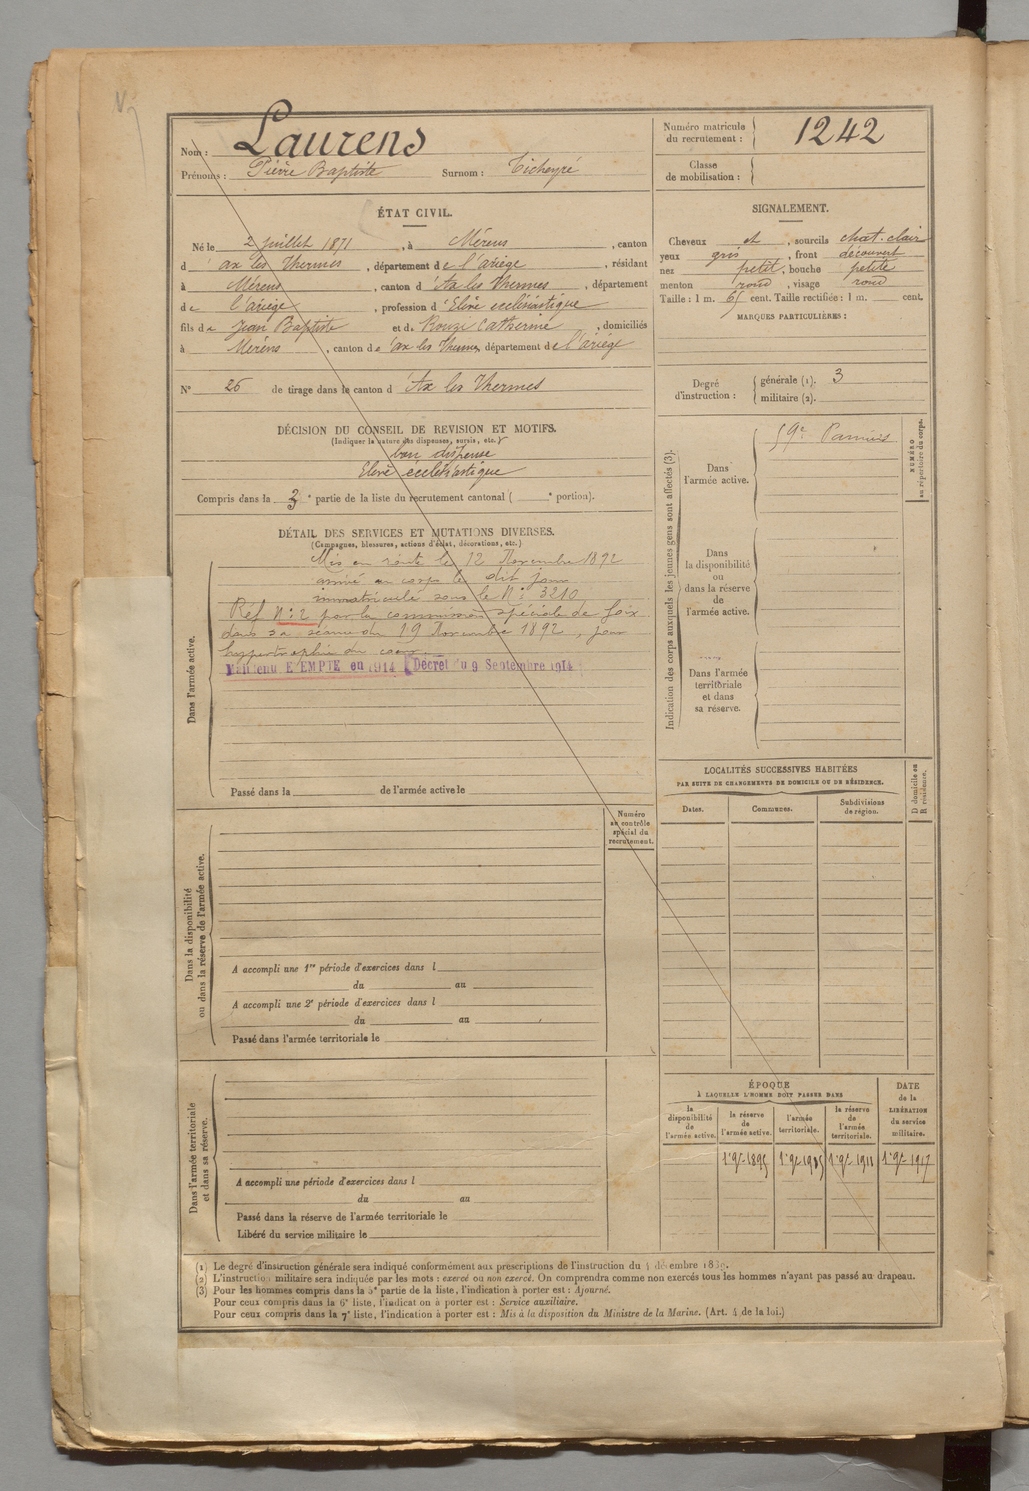 Nom : Laurens
Prénoms : Pierre Baptiste Surnom : Ticheyré
Numéro matricule du recrutement : 1242
Classe de mobilisation :
ÉTAT CIVIL.
Né le 2 juillet 1871, à Mérens, canton
d ax les Thermes, département de l'ariège, résidant
à Mérens, canton d'Ax les Thermes, département
de l'ariège, profession d'Elève ecclésiastique
fils de Jean Baptiste et de Rouze Catherine, domiciliés
à Meréns, canton de ax les Thermes département de l'ariège
N° 26 de tirage dans le canton d'Ax les Thermes
SIGNALEMENT.
Cheveux et, sourcils chat. clair
yeux gris, front découvert
nez petit, bouche petite
menton rond, visage rond
Taille : 1 m. 65 cent. Taille rectifiée : 1 m. cent.
MARQUES PARTICULIÈRES :
Degré d'instruction : générale (1). 3
militaire (2).
DÉCISION DU CONSEIL DE REVISION ET MOTIFS.
(Indiquer la nature des dispenses, sursis, etc.)
bon dispense
Elève écclésiastique
Compris dans la 3e partie de la liste du recrutement cantonal ( e portion).
DÉTAIL DES SERVICES ET MUTATIONS DIVERSES.
(Campagnes, blessures, actions d'éclat, décorations, etc.)
Dans l'armée active.
Mis en route le 12 Novembre 1892
arrivé au corps le dit jour
immatriculé sous le N° 3210
Réf N° 2 par la commission spéciale de Foix
dans sa séance du 19 Novembre 1892, pour
hypertrophie du coeur.
Maintenu EXEMPTE en 1914 Décret du 9 Septembre 1914
Passé dans la de l'armée active le
Indication des corps auxquels les jeunes gens sont affectés (3).
NUMÉRO au répertoire du corps.
Dans l'armée active.
59e Pamiers
Dans la disponibilité ou dans la réserve de l'armée active.
Dans l'armée territoriale et dans sa réserve.
LOCALITÉS SUCCESSIVES HABITÉES
PAR SUITE DE CHANGEMENTS DE DOMICILE OU DE RÉSIDENCE.
Dates. Communes. Subdivisions de région. D domicile ou R résidence.
Numéro au contrôle spécial du recrutement.
Dans la disponibilité ou dans la réserve de l'armée active.
A accompli une 1re période d'exercices dans l
du au
A accompli une 2e période d'exercices dans l
du au
Passé dans l'armée territoriale le
Dans l'armée territoriale et dans sa réserve.
A accompli une période d'exercices dans l
du au
Passé dans la réserve de l'armée territoriale le
Libéré du service militaire le
ÉPOQUE
À LAQUELLE L'HOMME DOIT PASSER DANS
la disponibilité de l'armée active. la réserve de l'armée active. l'armée territoriale. la réserve de l'armée territoriale. DATE de la LIBÉRATION du service militaire.
1er 9re 1895 1er 9re 1905 1er 9re 1911 1er 9re 1917
(1) Le degré d'instruction générale sera indiqué conformément aux prescriptions de l'instruction du 4 décembre 1889.
(2) L'instruction militaire sera indiquée par les mots : exercé ou non exercé. On comprendra comme non exercés tous les hommes n'ayant pas passé au drapeau.
(3) Pour les hommes compris dans la 5e partie de la liste, l'indication à porter est : Ajourné.
Pour ceux compris dans la 6e liste, l'indication à porter est : Service auxiliaire.
Pour ceux compris dans la 7e liste, l'indication à porter est : Mis à la disposition du Ministre de la Marine. (Art. 4 de la loi.)